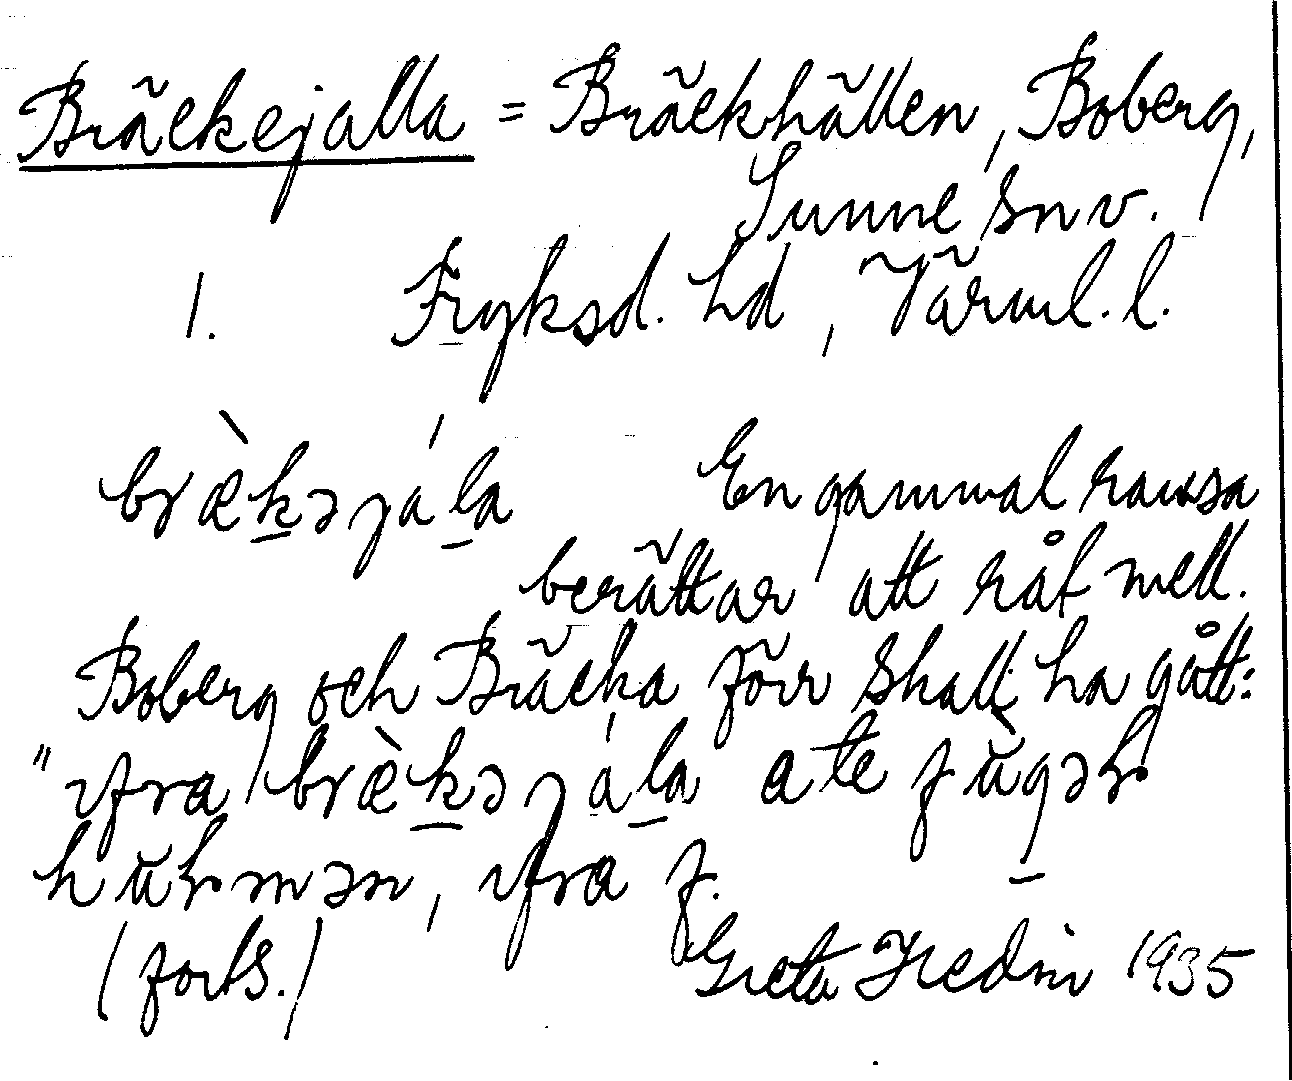 Bräckejalla = Bräckhällen, Boberg,
Sunne snv.
1. Fryksd. hd, Värml. l.
bræ̀kəjála En gammal ramsa
berättar att rået mell.
Boberg och Bräcka förr skall ha gått:
"ifra bræ̀kəjála ate
(forts.) Greta Hedin 1935